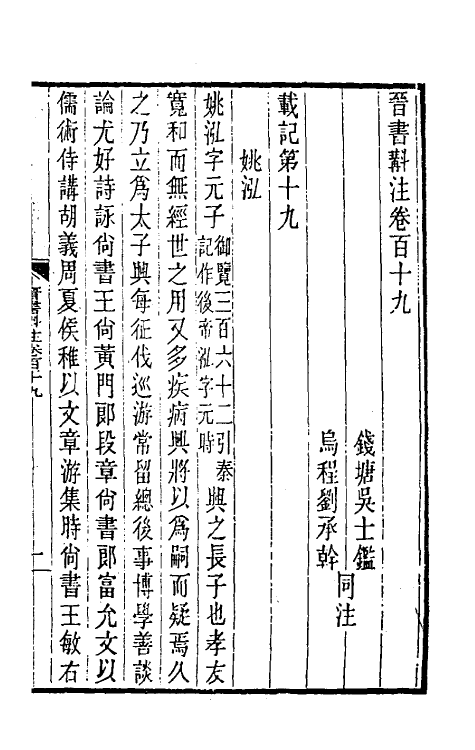 晉書斠注卷百十九
錢塘吳士鑑
烏程劉承幹
同注
載記第十九
姚泓
姚泓字元子御覽三百六十二引秦記作後帝泓字元時興之長子也孝友
寬和而無經世之用又多疾病興將以爲嗣而疑焉久
之乃立爲太子興每征伐巡游常留總後事博學善談
論尤好詩詠尙書王尙黃門郞段章尙書郞富允文以
儒術侍講胡義周夏侯稚以文章游集時尙書王敏右
晉書斠注卷百十九
一